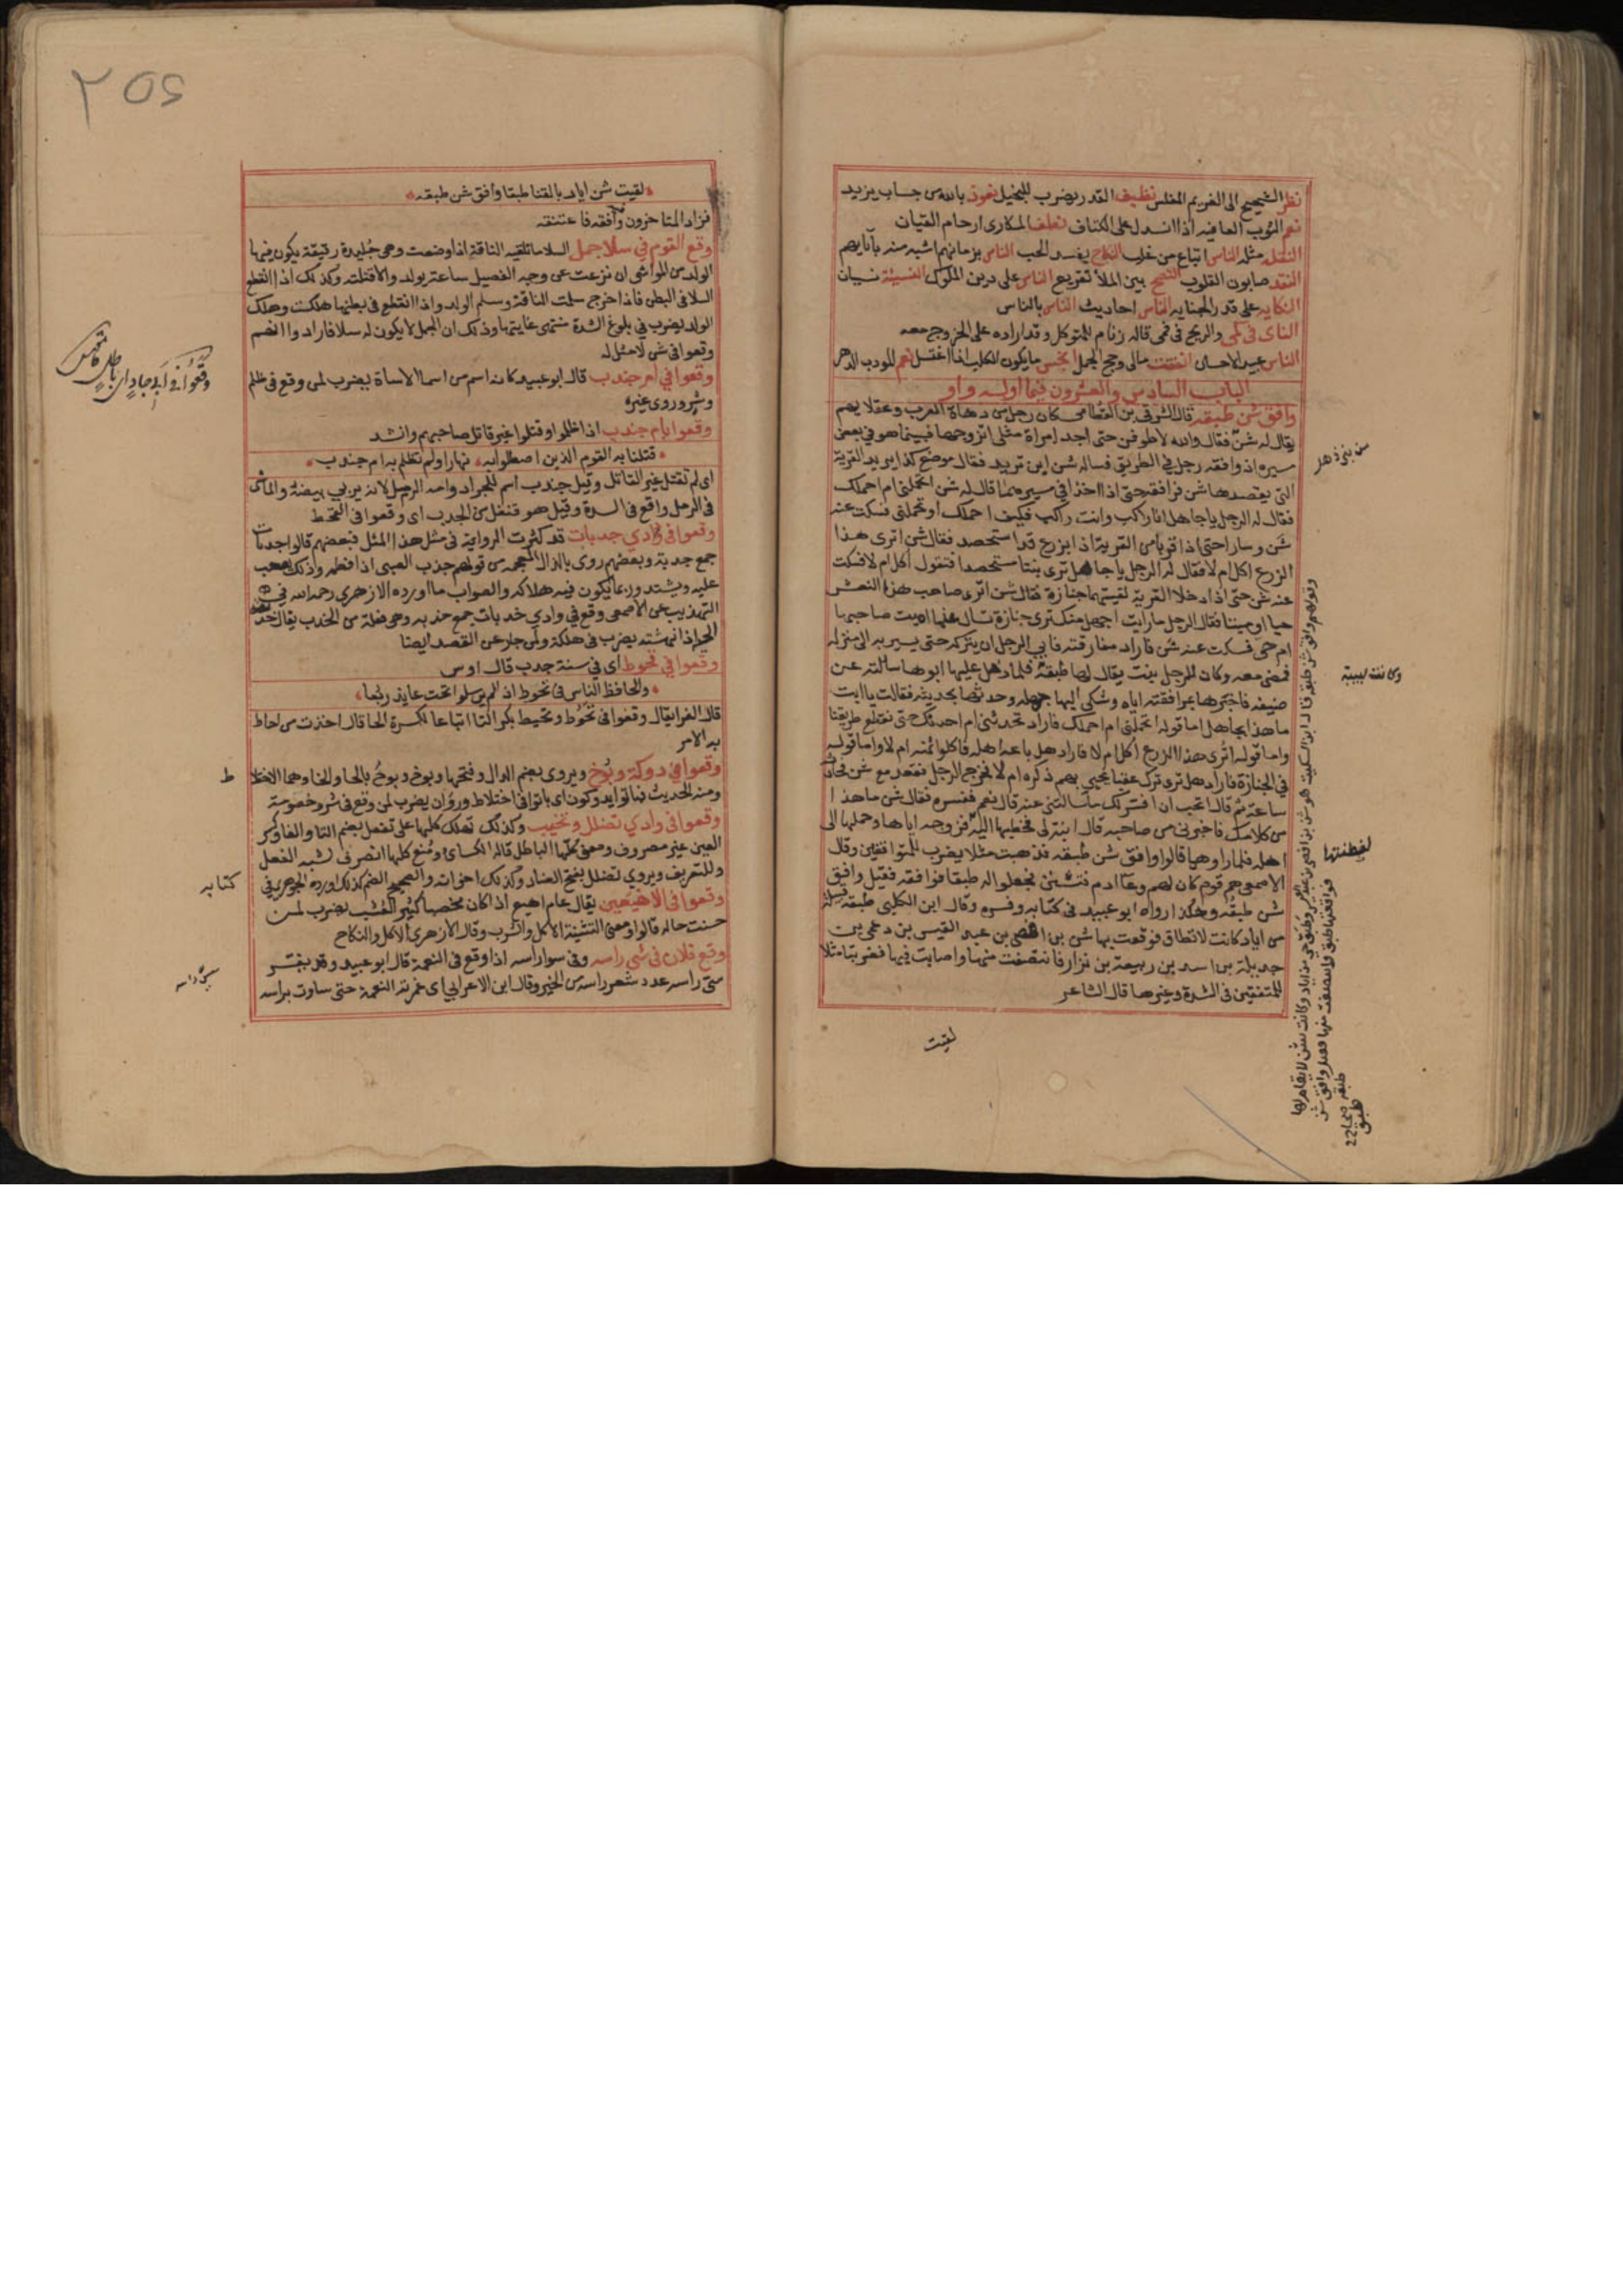 نظر الشحيح الى الغريم المفلس نظيف القدر يضرب للبخيل نعوذ بالله من حساب يزيد
نعم الثوب العافيه اذا انسدل على الكفاف المكارى ارحام القيان
النقله مثله الناس اتباع من غلب النكاح يفسد الحب الناس بزمانهم اشبه منه بآبايهم
النقد صابون القلوب النصح بين الملأ تقريع الناس على دين الملوك النسيئة نسيان
النكايه على قدر الجنايه الناس احاديث الناس بالناس
الناى فى كمى والريح فى فمى قاله زنام للمتوكل وقد اراده على الخروج معه
الناس عبيد الاحسان انفقت مالى وحج الجمل انجس مايكون الكلب اذا اغتسل نعم المودب الدهر
الباب السادس والعشرون فيما اوله واو
وافق شن طبقه قال الشرقى بن القطامى كان رجل من دهاة العرب وعقلايهم
يقال له شن فقال والله لاطوفن حتى اجد امراة مثلى اتزوجها فبينما هو فى بعض
مسيره اذ وافقه رجل فى الطريق فساله شن اين تريد فقال موضع كذا يريد القرية
التى يقصدها شن فرافقه حتى اذا اخذا فى مسيرهما قال له شن اتحملنى ام احملك
فقال له الرجل يا جاهل انا راكب وانت راكب فكيف احملك او تحملنى فسكت عنه
شن وسارا حتى اذا قربا من القرية اذا بزرع قد استحصد فقال شن اترى هذا
الزرع اكل ام لا فقال له الرجل يا جاهل ترى نبتا مستحصدا فتقول اكل ام لا فسكت
عنه شن حتى اذا دخلا القرية لقيتهما جنازة فقال شن اترى صاحب هذا النعش
حيا او ميتا فقال الرجل ما رايت اجهل منك ترى جنازة تسال عنها اميت صاحبها
ام حى فسكت عنه شن فاراد مفارقته فابى الرجل ان يتركه حتى يسير به الى منزله
فمضى معه وكان للرجل بنت يقال لها طبقة فلما دخل عليها ابوها سالته عن
ضيفه فاخبرها بمرافقته اياه وشكى اليها جهله وحدثها بحديثه فقالت يا ابت
ما هذا بجاهل اما قوله اتحملنى ام احملك فاراد تحدثنى ام احدثك حتى نقطع طريقنا
واما قوله اترى هذا الزرع اكل ام لا فاراد هل باعه اهله فاكلوا ثمنه ام لا واما قوله
فى الجنازة فاراد هل ترى ترك عقبا يحيى بهم ذكره ام لا فخرج الرجل فقعد مع شن فحادثه
ساعة ثم قال اتحب ان افسر لك ما سالتنى عنه قال نعم ففسره فقال شن ما هذا
من كلامك فاخبرنى من صاحبه قال ابنة لى فخطبها اليه فزوجه اياها وحملها الى
اهله فلما راوهما قالوا وافق شن طبقه فذهبت مثلا يضرب للمتوافقين وقال
الاصمعى هم قوم كان لهم وعا ادم فتشنن فجعلوا له طبقا فوافقه فقيل وافق
شن طبقه وهكذا رواه ابو عبيد فى كتابه وفسره وقال ابن الكلبى طبقه قبيلة
من اياد كانت لا تطاق فوقعت بها شن بن افصى بن عبد القيس بن دعمى بن
جديلة بن اسد بن ربيعة بن نزار فانتصفت منها واصابت فيها فضربتا مثلا
للمتفقين فى الشدة وغيرها قال الشاعر
لقيت
وكانت لبيبة
لفطنتها
٢٥٤
لقيت شن اياد بالقنا طبقا وافق شن طبقه
فزاد المتاخرون وافقه فاعتنقه
وقع القوم فى سلا جمل السلا ما تلقيه الناقة اذا وضعت وهى جليدة رقيقة يكون فيها
الولد من المواشى ان نزعت عن وجه الفصيل ساعة يولد والا قتلته وكذلك اذا انقطع
السلا فى البطن فاذا خرج سلمت الناقة وسلم الولد واذا انقطع فى بطنها هلكت وهلك
الولد يضرب فى بلوغ الشدة منتهى غايتها وذلك ان الجمل لا يكون له سلا فارادوا انهم
وقعوا فى شى لا مثل له
وقعوا فى ام جندب قال ابو عبيد كانه اسم من اسما الاساة يضرب لمن وقع فى ظلم
وشر وروى غيره
وقعوا بام جندب اذا ظلموا وقتلوا غير قاتل صاحبهم وانشد
قتلنا به القوم الذين اصطلوا به نهارا ولم نظلم به ام جندب
اى لم نقتل غير القاتل وقيل جندب اسم للجراد وامه الرمل لانه يربى بيضه والماشى
فى الرمل واقع فى الشدة وقيل هو فنعل من الجدب اى وقعوا فى القحط
وقعوا فى وادى جدبات قد كثرت الرواية فى مثل هذا المثل فبعضهم قالوا جدبات
جمع جدبة وبعضهم روى بالذال المعجمه من قولهم جذب الصبى اذا فطمه وذلك يصعب
عليه ويشتد وربما يكون فيه هلاكه والصواب ما اورده الازهرى رحمه الله فى
التهذيب عن الاصمعى وقع فى وادى خدبات جمع خدبه وهى فعلة من الخدب يقال خدبته
الحية اذا نهشته يضرب فى هلكة ولمن جار عن القصد ايضا
وقعوا فى تحوط اى فى سنة جدب قال اوس
والحافظ الناس فى تحوط اذ لم يرسلوا تحت عايذ ربعا
قال الفرا يقال وقعوا فى تحوط وتحيط بكسر التا اتباعا لكسرة الحا قال اخذت من احاط
به الامر
وقعوا فى دوكة وبوخ ويروى بضم الدال وفتحها وبوخ وبوح بالحا والخا وهما الاختلا ط
ومنه الحديث فباتوا يدوكون اى باتوا فى اختلاط ودوران يضرب لمن وقع فى شر وخصومة
وقعوا فى وادى تضلل وتخيب وكذلك تهلك كلها على تفعل بضم التا والفا وكسر
العين غير مصروف ومعنى كلها الباطل قاله الكسائى ومنع كلها الصرف لشبه الفعل
وللتعريف ويروى تضلل بفتح الضاد وكذلك اخواته والصحيح الضم كذلك اورده الجوهرى فى كتابه
وقعوا فى الاهيغين يقال عام اهيغ اذا كان مخصبا كثير العشب يضرب لمن
حسنت حاله قالوا ومعنى التثنية الاكل والشرب وقال الازهرى الاكل والنكاح
وقع فلان فى سى راسه وفى سوا راسه اذا وقع فى النعمة قال ابو عبيد وقد يفسر
سى راسه عدد شعر راسه من الخير وقال ابن الاعرابى اى غمرته النعمة حتى ساوت براسه